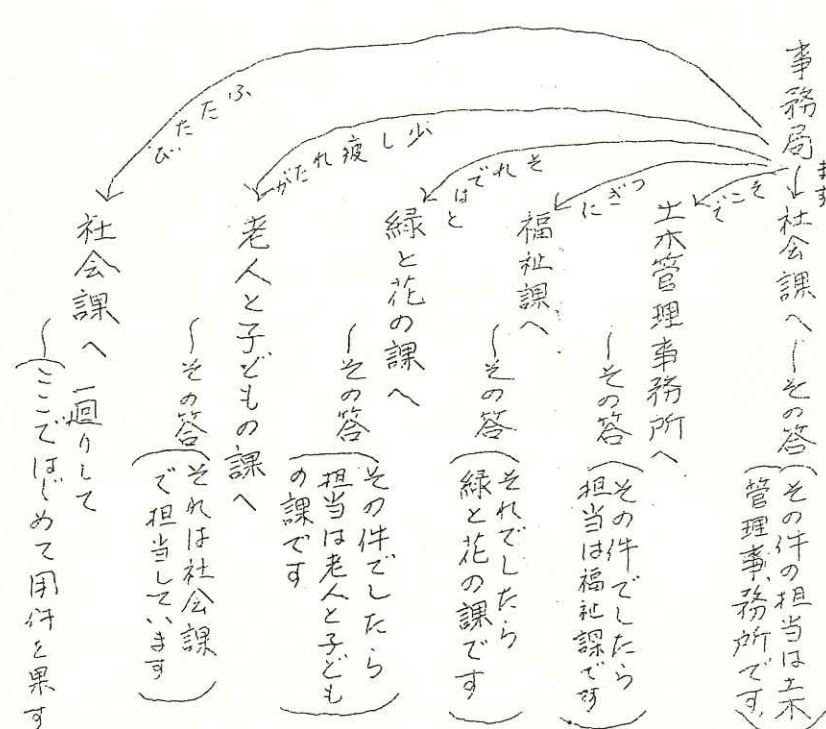 事務局
まず
社会課へ〜その答
(その件の担当は土木
管理事務所です。)
そこで
土木管理事務所へ
〜その答
(その件でしたら
担当は福祉課です)
つぎに
福祉課へ
〜その答
(それでしたら
緑と花の課です)
それでは
と
緑と花の課へ
〜その答
(その件でしたら
担当は老人と子ども
の課です)
少し疲れたが
老人と子どもの課へ
〜その答
(それは社会課
で担当しています)
ふたたび
社会課へ 一廻りして
〜(ここではじめて用件を果す